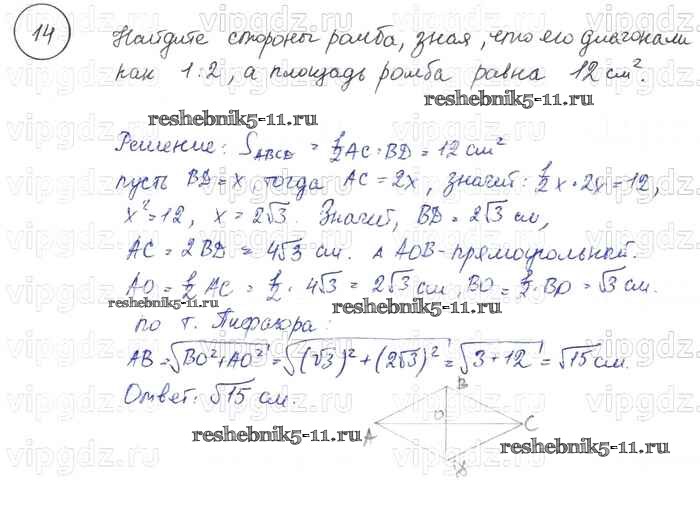 14
Найдите стороны ромба, зная, что его диагонали
как 1:2, а площадь ромба равна 12 см².
reshebnik5-11.ru
reshebnik5-11.ru
Решение: S_ABCD = 1/2 AC · BD = 12 см²
пусть BD = x, тогда AC = 2x, значит: 1/2 x · 2x = 12,
x² = 12, x = 2√3. Значит, BD = 2√3 см,
AC = 2BD = 4√3 см. △ AOB - прямоугольный.
AO = 1/2 AC = 1/2 · 4√3 = 2√3 см, BO = 1/2 · BD = √3 см.
reshebnik5-11.ru
reshebnik5-11.ru
по т. Пифагора:
AB = √BO² + AO² = √(√3)² + (2√3)² = √3 + 12 = √15 см.
Ответ: √15 см.
B
O
A
C
reshebnik5-11.ru
reshebnik5-11.ru
vipgdz.ru